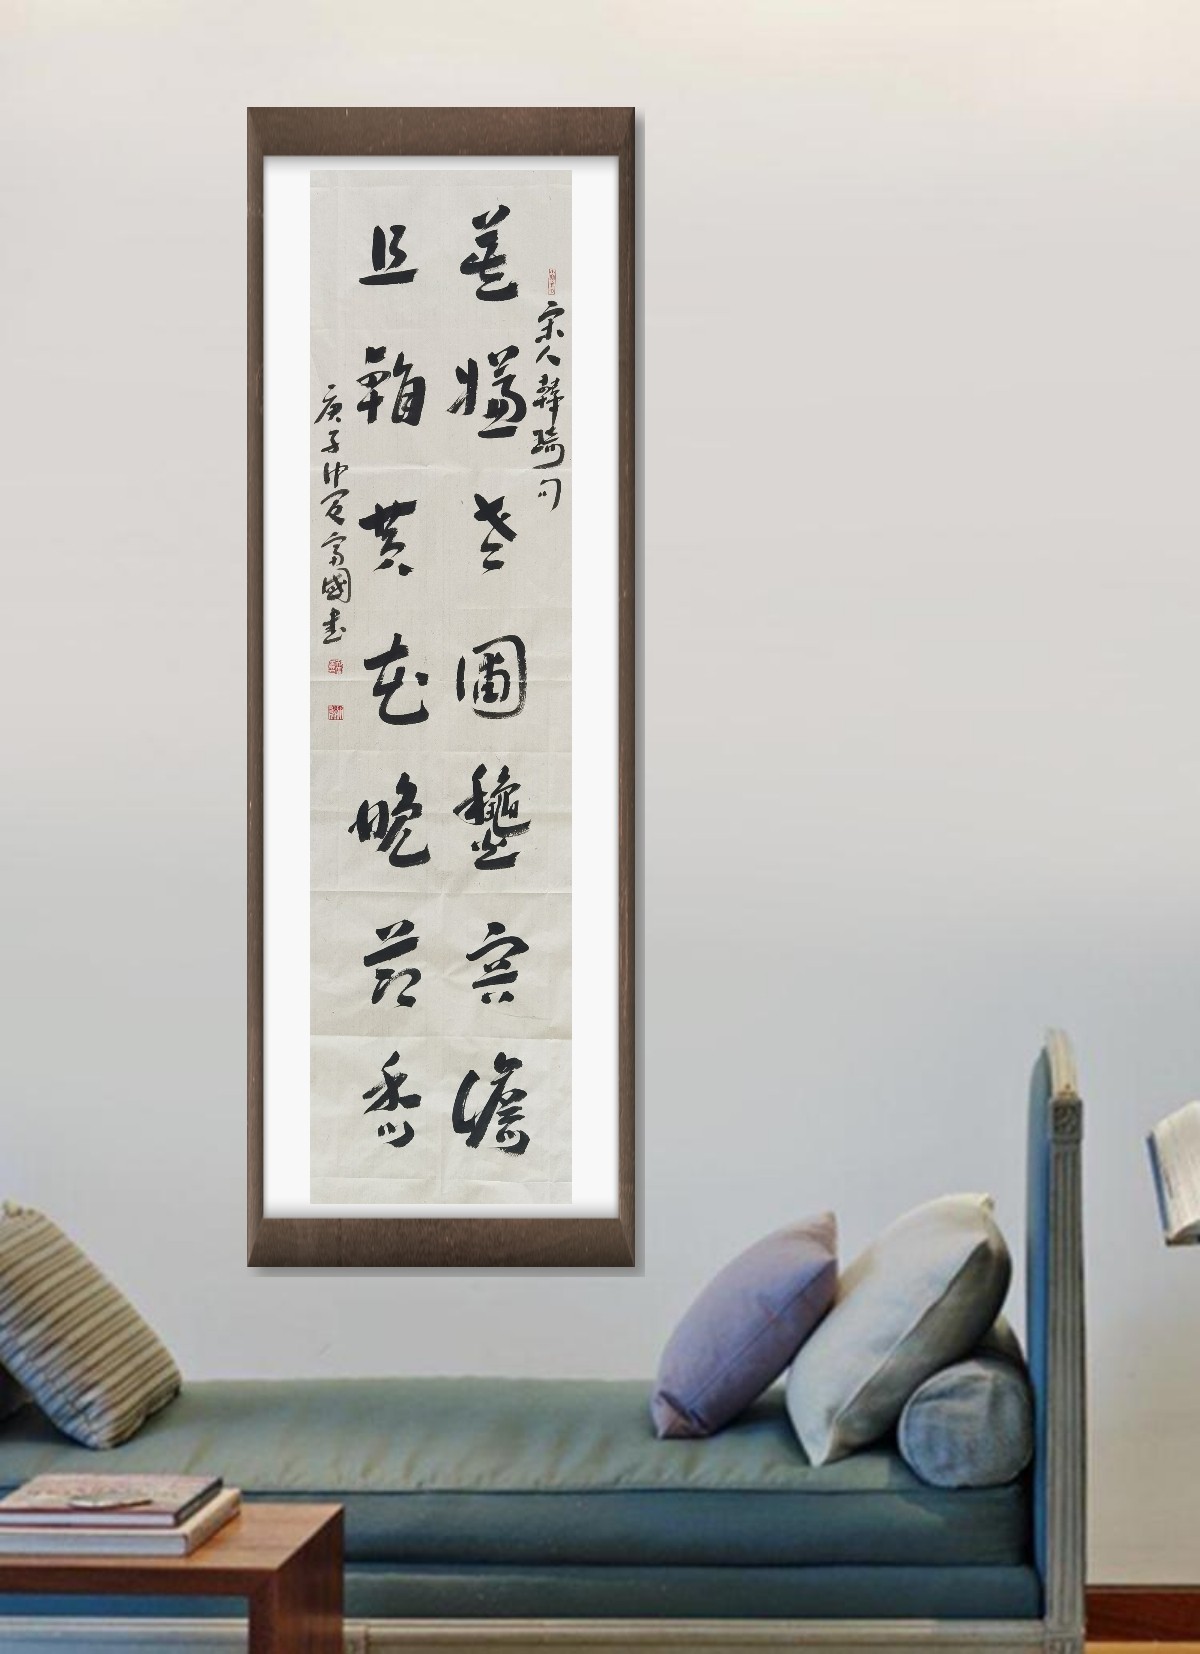 宋人韓琦句
莫嫌老圃秋容澹
且看黄花晚节香
庚子仲夏富國书